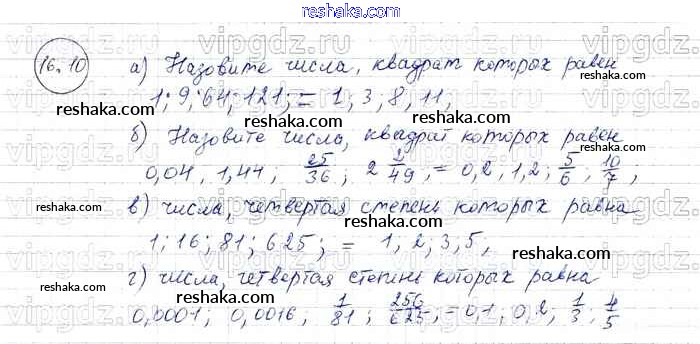 reshaka.com
16.10
а) Назовите числа, квадрат которых равен
1; 9; 64; 121; = 1; 3; 8, 11,
б) Назовите числа, квадрат которых равен
0,04, 1,44; 25/36; 2 2/49, = 0,2, 1,2; 5/6; 10/7;
в) числа, четвертая степень которых равна
1; 16; 81; 625; = 1, 2; 3, 5,
г) числа, четвертая степень которых равна
0,0001; 0,0016; 1/81; 256/625, = 0,1; 0,2; 1/3; 4/5